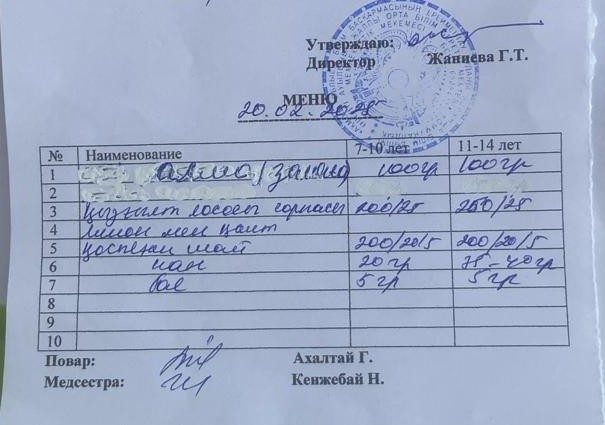 Утверждаю:
Директор Жаниева Г.Т.
МЕНЮ
20.02.2025
№ Наименование 7-10 лет 11-14 лет
1 алма 100гр 100гр
2
3 сорпасы 200/25 250/25
4 лимон мен қант
5 шай 200/20/5 200/20/5
6 нан 20гр 35-40гр
7 бал 5гр 5гр
8
9
10
Повар: Ахалтай Г.
Медсестра: Кенжебай Н.